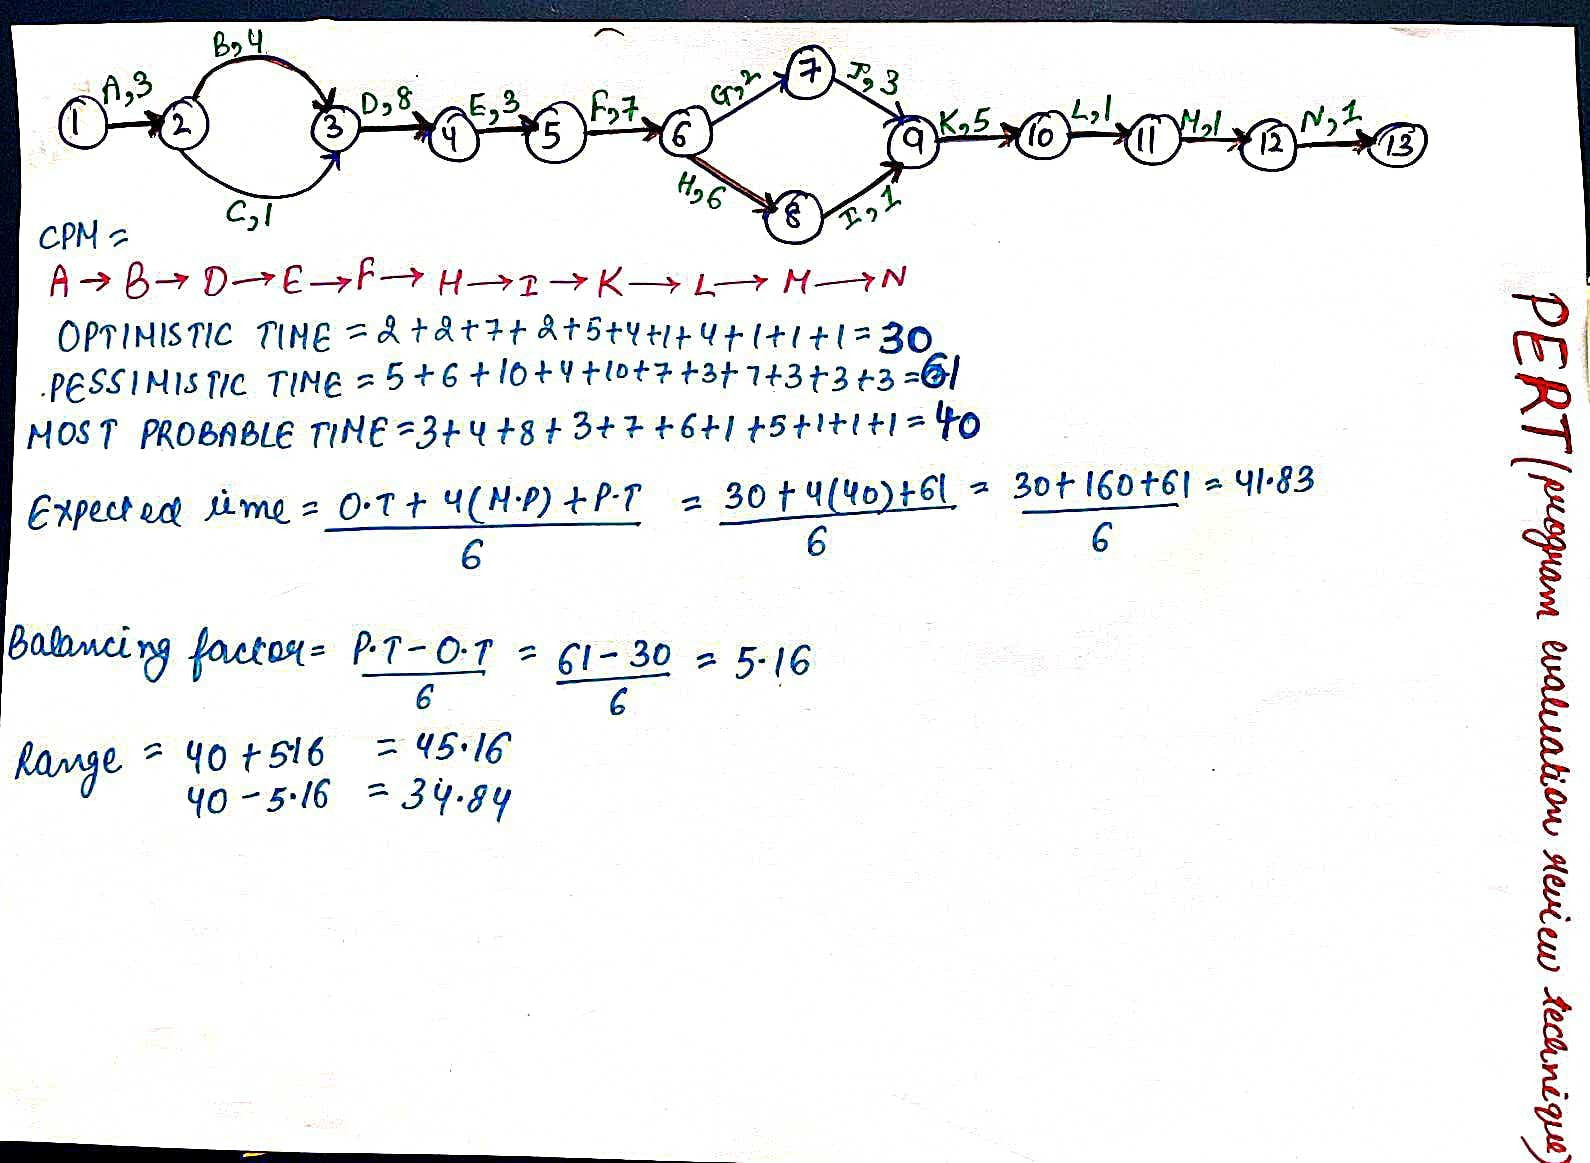 A,3 B,4 C,1 D,8 E,3 F,7 G,2 H,6 J,3 I,1 K,5 L,1 M,1 N,1
1 2 3 4 5 6 7 8 9 10 11 12 13
CPM =
A → B → D → E → F → H → I → K → L → M → N
OPTIMISTIC TIME = 2+2+7+2+5+4+1+4+1+1+1 = 30
.PESSIMISTIC TIME = 5+6+10+4+10+7+3+7+3+3+3 = 61
MOST PROBABLE TIME = 3+4+8+3+7+6+1+5+1+1+1 = 40
Expected time = O.T + 4(M.P) + P.T / 6 = 30+4(40)+61 / 6 = 30+160+61 / 6 = 41.83
Balancing factor = P.T - O.T / 6 = 61-30 / 6 = 5.16
Range = 40 + 516 = 45.16
40 - 5.16 = 34.84
PERT (program evaluation review technique)